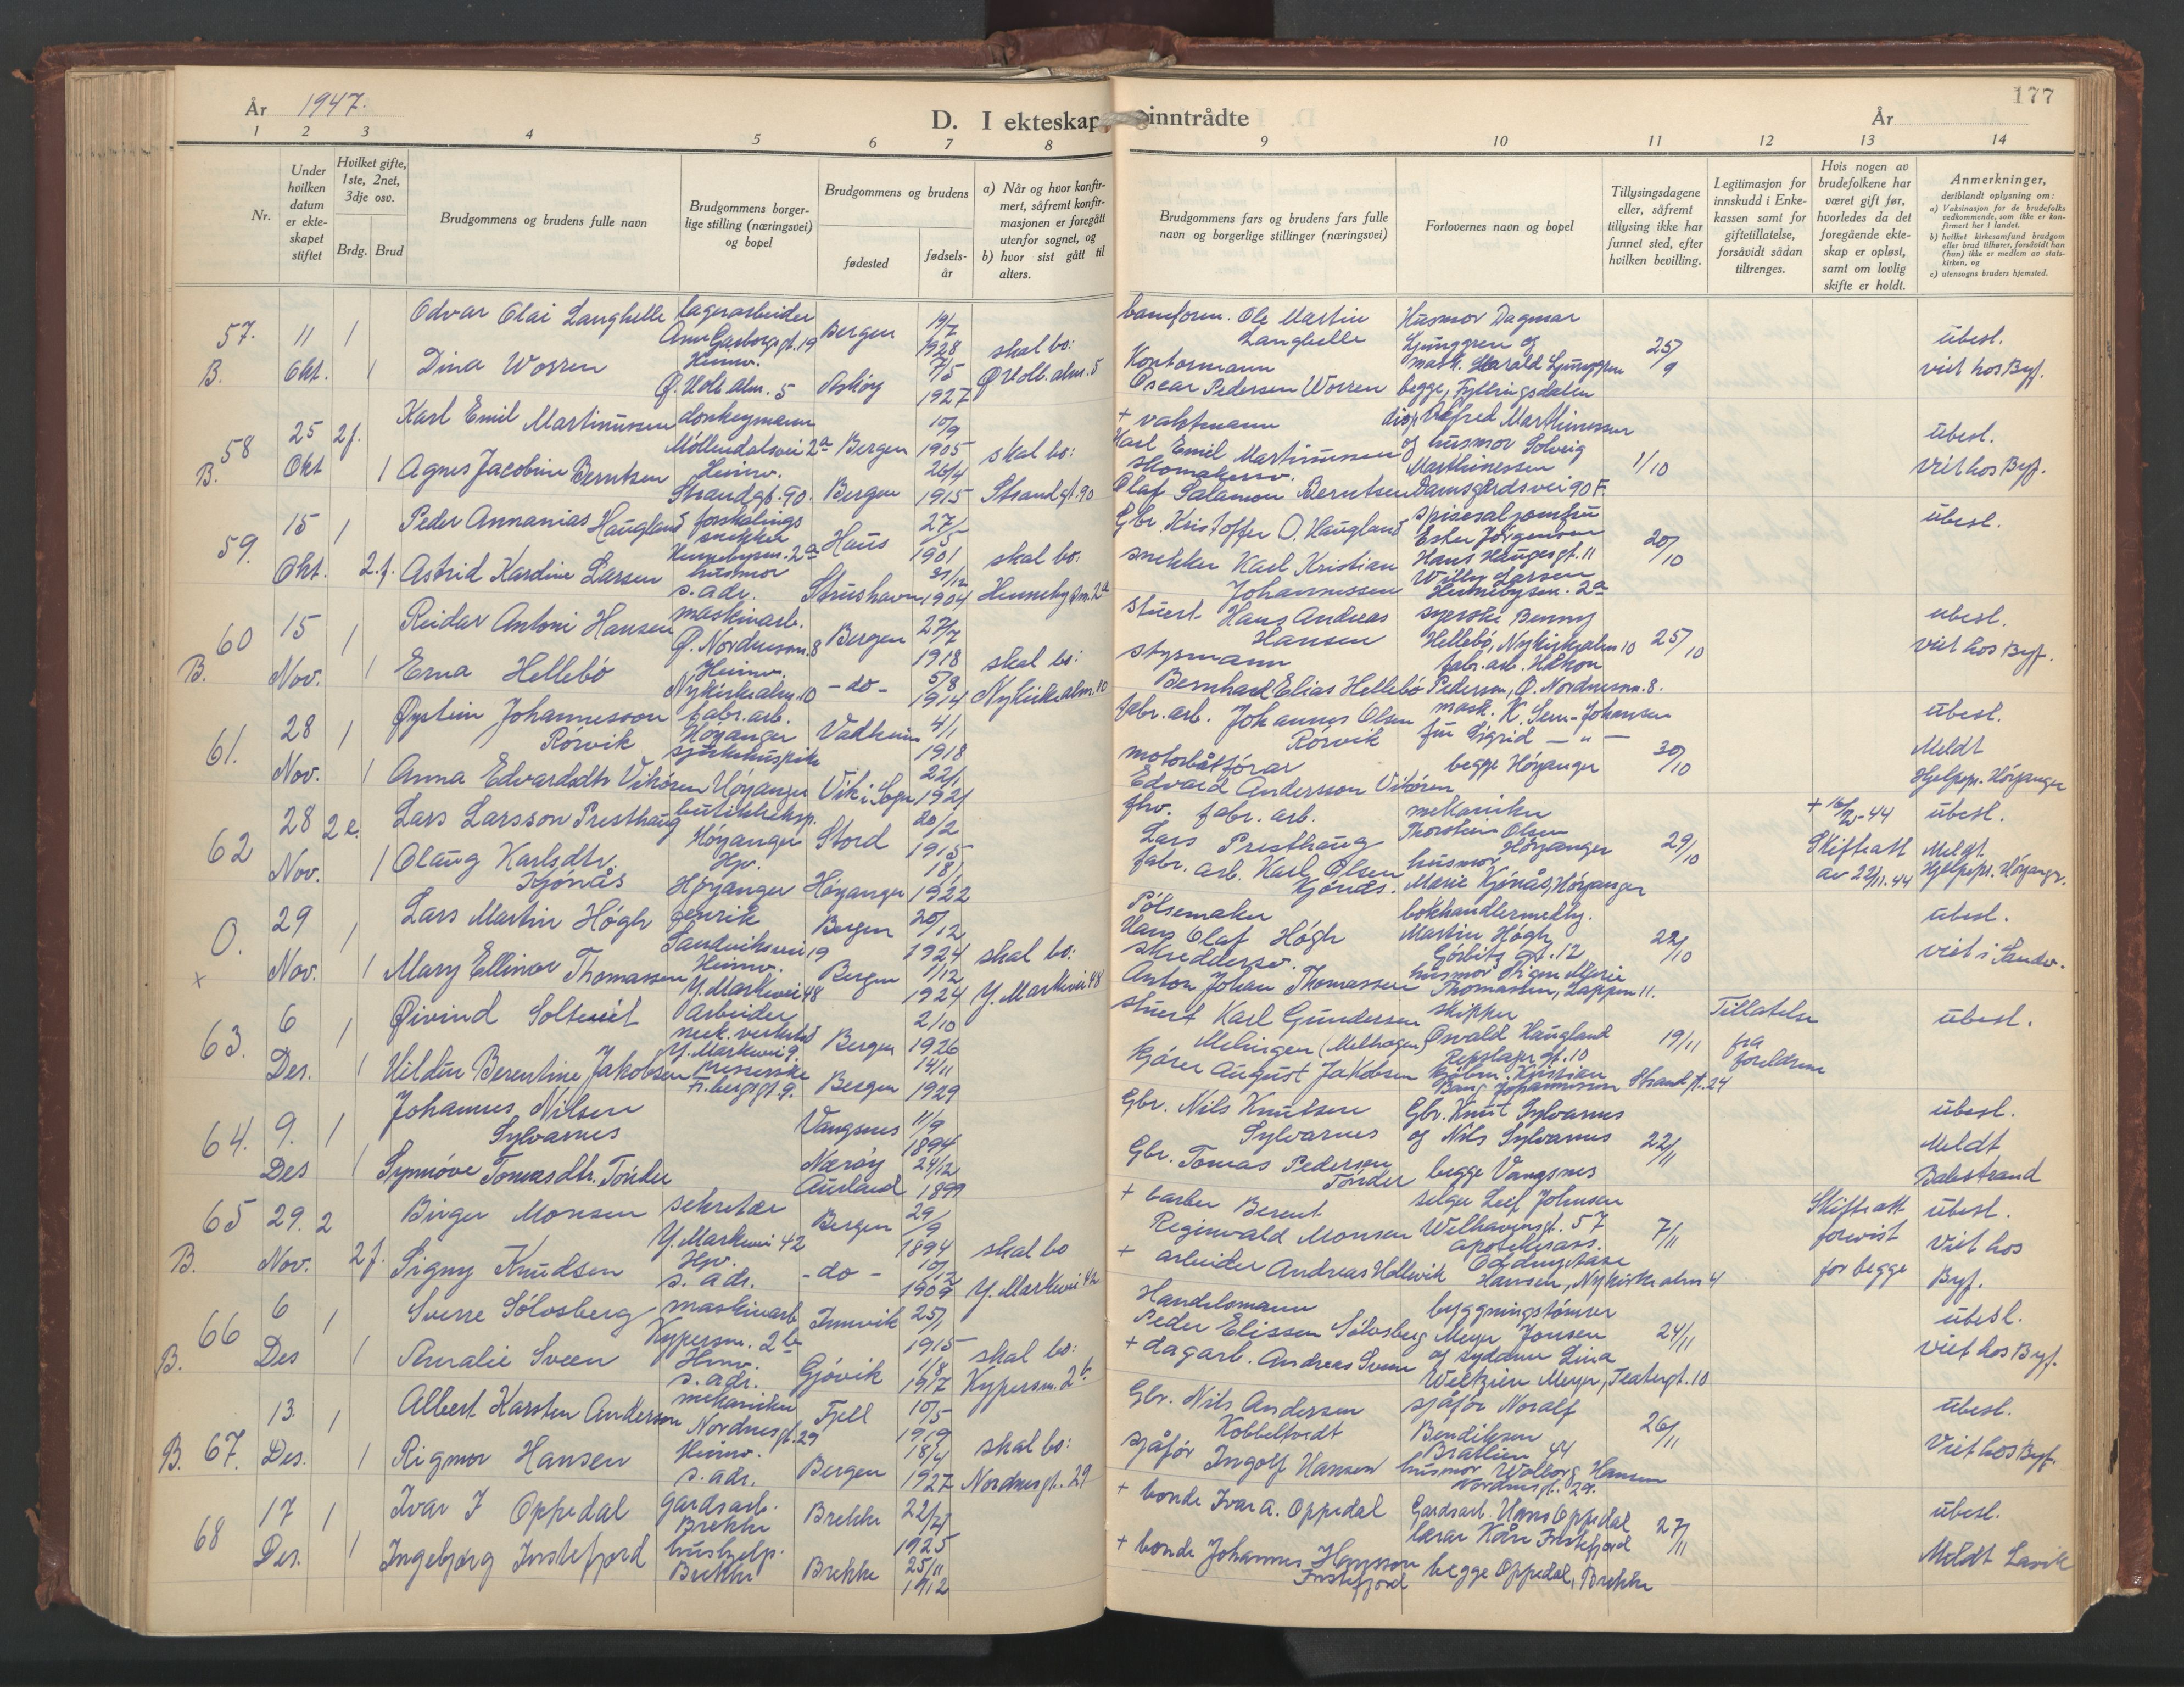 År 1947.
D. I ekteskap inntrådte
År
177
1 2 3 4 5 6 7 8 9 10 11 12 13 14
Nr.
Under hvilken datum er ekteskapet stiftet
Hvilket gifte, 1ste, 2net, 3dje osv.
Brdg. Brud
Brudgommens og brudens fulle navn
Brudgommens borgerlige stilling (næringsvei) og bopel
Brudgommens og brudens
fødested
fødselsår
a) Når og hvor konfirmert, såfremt konfirmasjonen er foregått utenfor sognet, og
b) hvor sist gått til alters.
Brudgommens fars og brudens fars fulle navn og borgerlige stillinger (næringsvei)
Forlovernes navn og bopel
Tillysingsdagene eller, såfremt tillysing ikke har funnet sted, efter hvilken bevilling.
Legitimasjon for innskudd i Enkekassen samt for giftetillatelse, forsåvidt sådan tiltrenges.
Hvis nogen av brudefolkene har været gift før, hvorledes da det foregående ekteskap er opløst, samt om lovlig skifte er holdt.
Anmerkninger,
deriblandt oplysning om:
a) Vaksinasjon for de brudefolks vedkommende, som ikke er konfirmert her i landet.
b) hvilket kirkesamfund brudgom eller brud tilhører, forsåvidt han (hun) ikke er medlem av statskirken, og
c) utensogns bruders hjemsted.
57. B. 11 Okt. 1 Odvar Olai Langhelle lagerarbeider Arne Garborgsgt. 19 Bergen 19/7 1928 skal bo: Ø. Holb. alm. 5
1 Dina Worren Heimv. Ø. Holb. alm. 5 Askøy 7/5 1927
Ole Martin Langhelle
Kontormann Oscar Pedersen Worren
Husmor Dagmar Ljunggren og mask. Harald Ljunggren begge, Fyllingsdalen
25/9
übesl. viet hos Byf.
58 B. 25 Okt 2f. Karl Emil Martinussen donkeymann Møllendalsvei 2a Bergen 10/9 1905 skal bo: Strandgt. 90
1 Agnes Jacobine Berntsen Heimv. Strandgt. 90. Bergen 26/4 1915
+ vaktmann Karl Emil Martinussen
skomakersv. Olaf Salamon Berntsen
disp. Alfred Marthinessen og husmor Solveig Marthinessen Damsgårdsvei 90 F.
1/10
übesl. viet hos Byf.
59. 15 Okt. 1 Peder Annanias Haugland forskalings snekker Hennebysm. 2a Haus 27/5 1901 skal bo: Hennebysm. 2a
2.f. Astrid Kardine Larsen husmor s. adr. Strushavn 31/12 1904
Gbr. Kristoffer O. Haugland
snekker Karl Kristian Johannessen
spisesaljomfru Ester Jørgensen Hans Haugesgt. 11 Willy Larsen Hennebysm. 2a
20/10
übesl.
60 B. 15 Nov. 1 Reidar Antoni Hansen maskinarb. Ø. Nordnesm. 8 Bergen 27/7 1918 skal bo: Nykirkealm. 10
1 Erna Hellebø Heimv. Nykirkealm. 10 - do - 5/8 1914
stuert Hans Andreas Hansen
styrmann Bernhard Elias Hellebø
syerske Benny Hellebø, Nykirkealm 10 fabr. arb. Håkon Pedersen, Ø. Nordnesm. 8.
25/10
übesl. viet hos Byf.
61. 28 Nov. 1 Øystein Johannesson Rørvik fabr. arb. Høyanger Vadheim 4/1 1918
1 Anna Edvardsdtr Vikøren sjukehuspike Høyanger Vik i Sogn 22/1 1921
fabr. arb. Johannes Olsen Rørvik
motorbåtførar Edvard Andersson Vikøren
mask. K. Sem-Johansen fru Sigrid — " — begge Høyanger
30/10
übesl. Meldt Hjelpepr. Høyanger
62 28 Nov. 2 e. Lars Larsson Presthaug butikkeksp. Høyanger Stord 20/2 1915
1 Olaug Karlsdtr. Kjønås Hv. Høyanger Høyanger 18/1 1922
fhv. fabr. arb. Lars Presthaug
fabr. arb. Karl Olsen Kjønås.
mekaniker Thorstein Olsen Høyanger husmor Marie Kjønås, Høyanger
29/10
Skifteatt av 22/11.44
übesl. Meldt Hjelpepr. Høyangr.
0. x 29 Nov. 1 Lars Martin Høgh Sandviksvei 19 Bergen 20/12 1924 skal bo: Y. Markevei 48
1 Mary Ellinor Thomassen Heimv. Y. Markevei 48 Bergen 1/12 1924
Pølsemaker Hans Olaf Høgh
skreddersv. Anton Johan Thomassen
bokhandlermedhj. Martin Høgh Gørbitz gt. 12 husmor Signe Marie Thomassen, Lappen 11.
22/10
übesl. viet i Sandv.
63. 6 Des. 1 Øivind Soltveit Arbeider mek. verksted Y. Markevei 9. Bergen 2/10 1926
1 Hildur Berentine Jakobsen presserske Fr. bergsgt 9. Bergen 14/11 1929
stuert Karl Gundersen Melingen (Melhagen)
Kjører August Jakobsen
skipper Osvald Haugland Repslagergt. 10 Kjøbm. Kristian Bang Johannessen Strandgt. 24
19/11
Tillatelse fra foreldrene
übesl.
64. 9. Des 1 Johannes Nilsen Sylvarnes Vangsnes 11/9 1894
1 Synnøve Tomasdtr. Tønder Nærøy Aurland 24/12 1899
Gbr. Nils Knutsen Sylvarnes
Gbr. Tomas Pedersen Tønder
Gbr. Knut Sylvarnes og Nils Sylvarnes begge Vangsnes
22/11
übesl. Meldt Balestrand
65 B. 29. Nov. 2 Birger Monsen sekretær Y. Markevei 42 Bergen 29/9 1894 skal bo Y. Markevei 42
2f. Signy Knudsen Hv. s. adr. - do -
+ barber Berent Reginvald Monsen
+ arbeider Andreas Hellevik
selger Leif Johnsen Welhavensgt. 57 apotekerass. Hansen, Nykirkealm 4
7/11
Skifteatt forevist for begge
übesl. Viet hos Byf.
66 B. 6 Des 1 Sverre Sølvsberg maskinarb Kypersm. 2b Innvik 25/1 1915 skal bo: Kypersm. 2b
1 Amalie Sveen Hmv. s. adr. Gjøvik 1/8 1917
Handelsmann Peder Elissen Sølvsberg
+ dagarb. Andreas Sveen
byggningstømrer Meyer Jonsen og sydame Lina Weltzien Meyer, Teatergt. 10
24/11
übesl. viet hos Byf.
B. 67. 13. Des. 1 Albert Karsten Anderson mekaniker Nordnesgt. 29 Fjell 10/5 1919 skal bo: Nordnesgt. 29
1 Rigmor Hansen Heimv. s. adr. Bergen 18/4 1927
Gbr. Nils Andersen Kobbeltvedt
sjåfør Ingolf Hansen
sjåfør Noralf Bendiksen Bratlien 44 husmor Wolborg Hansen Nordnesgt. 29.
26/11
übesl. Viet hos Byf.
68 17 Des. 1 Ivar I Oppedal Gardsarb. Brekke Brekke 22/4 1925
1 Ingebjørg Instefjord hushjelp. Brekke Brekke 25/11 1912
+ bonde Ivar A. Oppedal
+ bonde Johannes Hansson Instefjord
Gardsarb. Hans Oppedal lærar Kåre Instefjord begge Oppedal, Brekke
27/11
übesl. Meldt Lavik